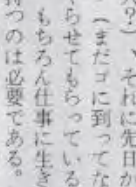 ？）、それに先日
（まだゴに到ってな
らせてもらっている
もちろん仕事に生き
持つのは必要である。